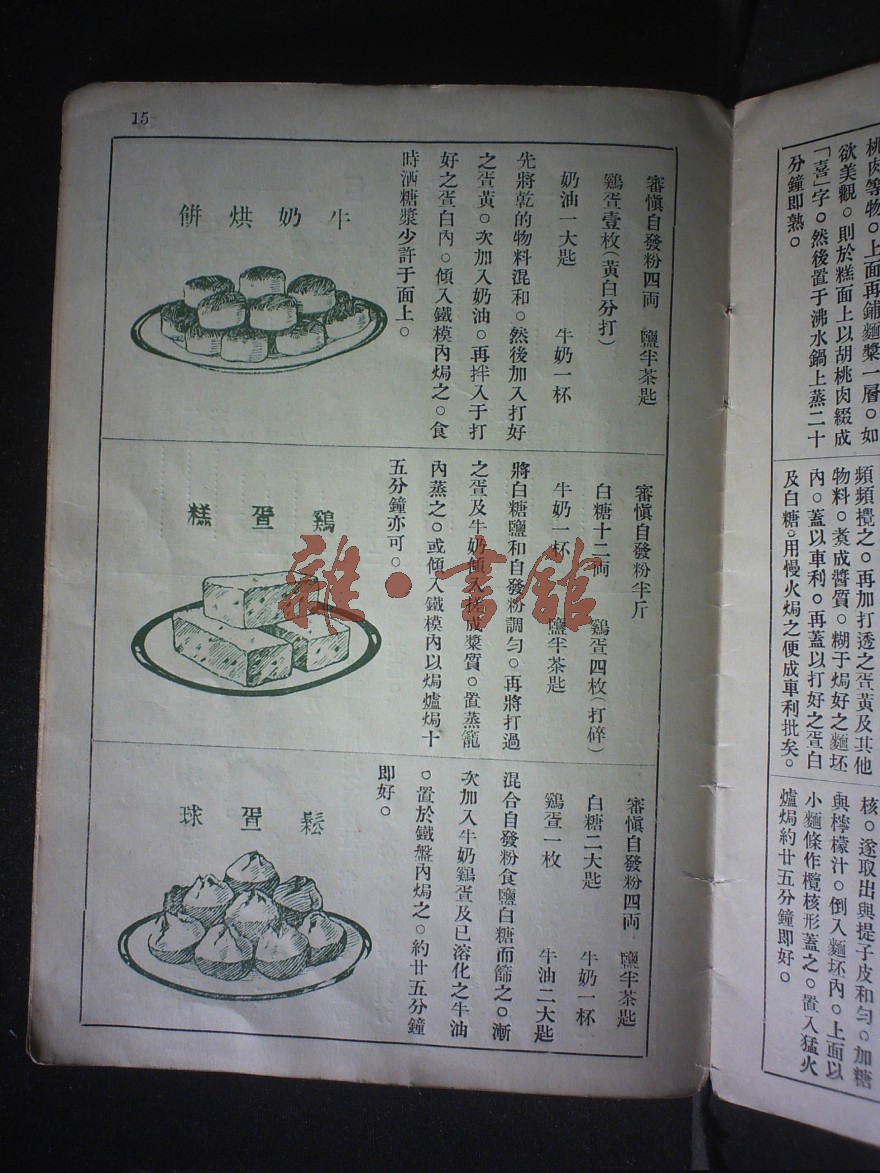 桃肉等物。上面再鋪麵漿一層。如
欲美觀。則於糕面上以胡桃肉綴成
「喜」字。然後置于沸水鍋上蒸二十
分鐘即熟。
頻頻攪之。再加打透之疍黃及其他
物料。煑成醬質。糊于焗好之麵坯
內。蓋以車利。再蓋以打好之疍白
及白糖。用慢火焗之便成車利批矣。
核。遂取出與提子皮和勻。加糖
與檸檬汁。倒入麵坯內。上面以
小麵條作欖核形蓋之。置入猛火
爐焗約廿五分鐘即好。
15
審愼自發粉四両 鹽半茶匙
鷄疍壹枚(黃白分打)
奶油一大匙 牛奶一杯
先將乾的物料混和。然後加入打好
之疍黃。次加入奶油。再拌入于打
好之疍白內。傾入鐵模內焗之。食
時洒糖漿少許于面上。
牛奶烘餅
審愼自發粉半斤
白糖十二両 鷄疍四枚(打碎)
牛奶一杯 鹽半茶匙
將白糖鹽和自發粉調勻。再將打過
之疍及牛奶傾入搓成漿質。置蒸籠
內蒸之。或傾入鐵模內以焗爐焗十
五分鐘亦可。
鷄疍糕
審愼自發粉四両 鹽半茶匙
白糖二大匙 牛奶一杯
鷄疍一枚 牛油二大匙
混合自發粉食鹽白糖而篩之。漸
次加入牛奶鷄疍及已溶化之牛油
。置於鐵盤內焗之。約廿五分鐘
即好。
鬆疍球
雜·書館